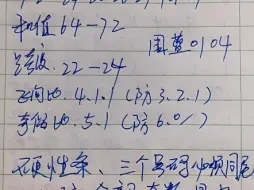 和值64—72
围蓝0104
跨度.22—24
区间比.4.1.1(防3.2.1)
奇偶比.5.1(防6.0)
硬性条、三个号码必须同尾